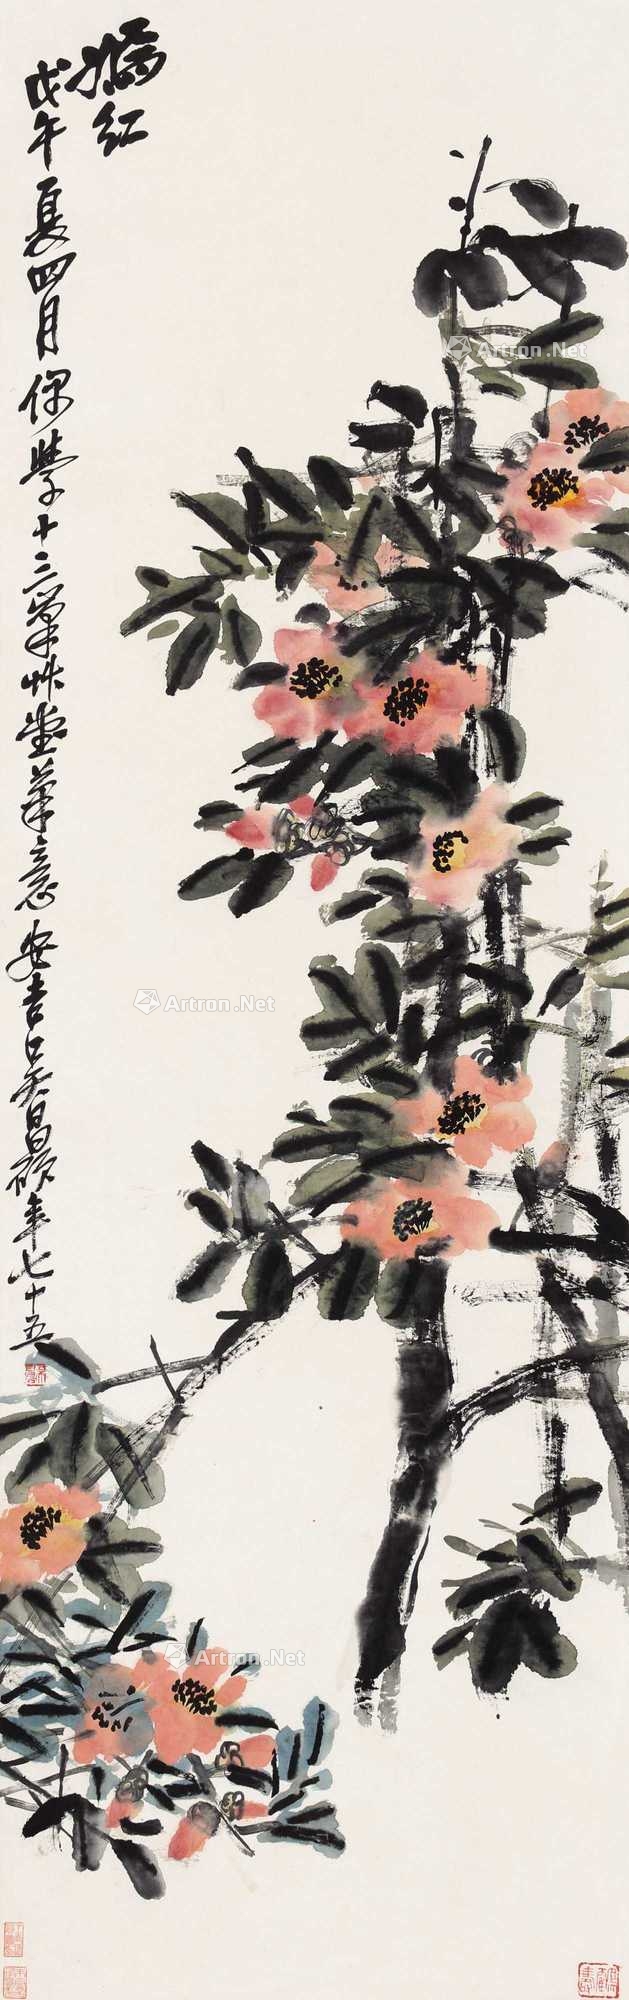 嫣红
戊午夏四月倣学十三峯草堂筆意安吉吴昌碩年七十五
Artron.Net
Artron.Net
Artron.Net